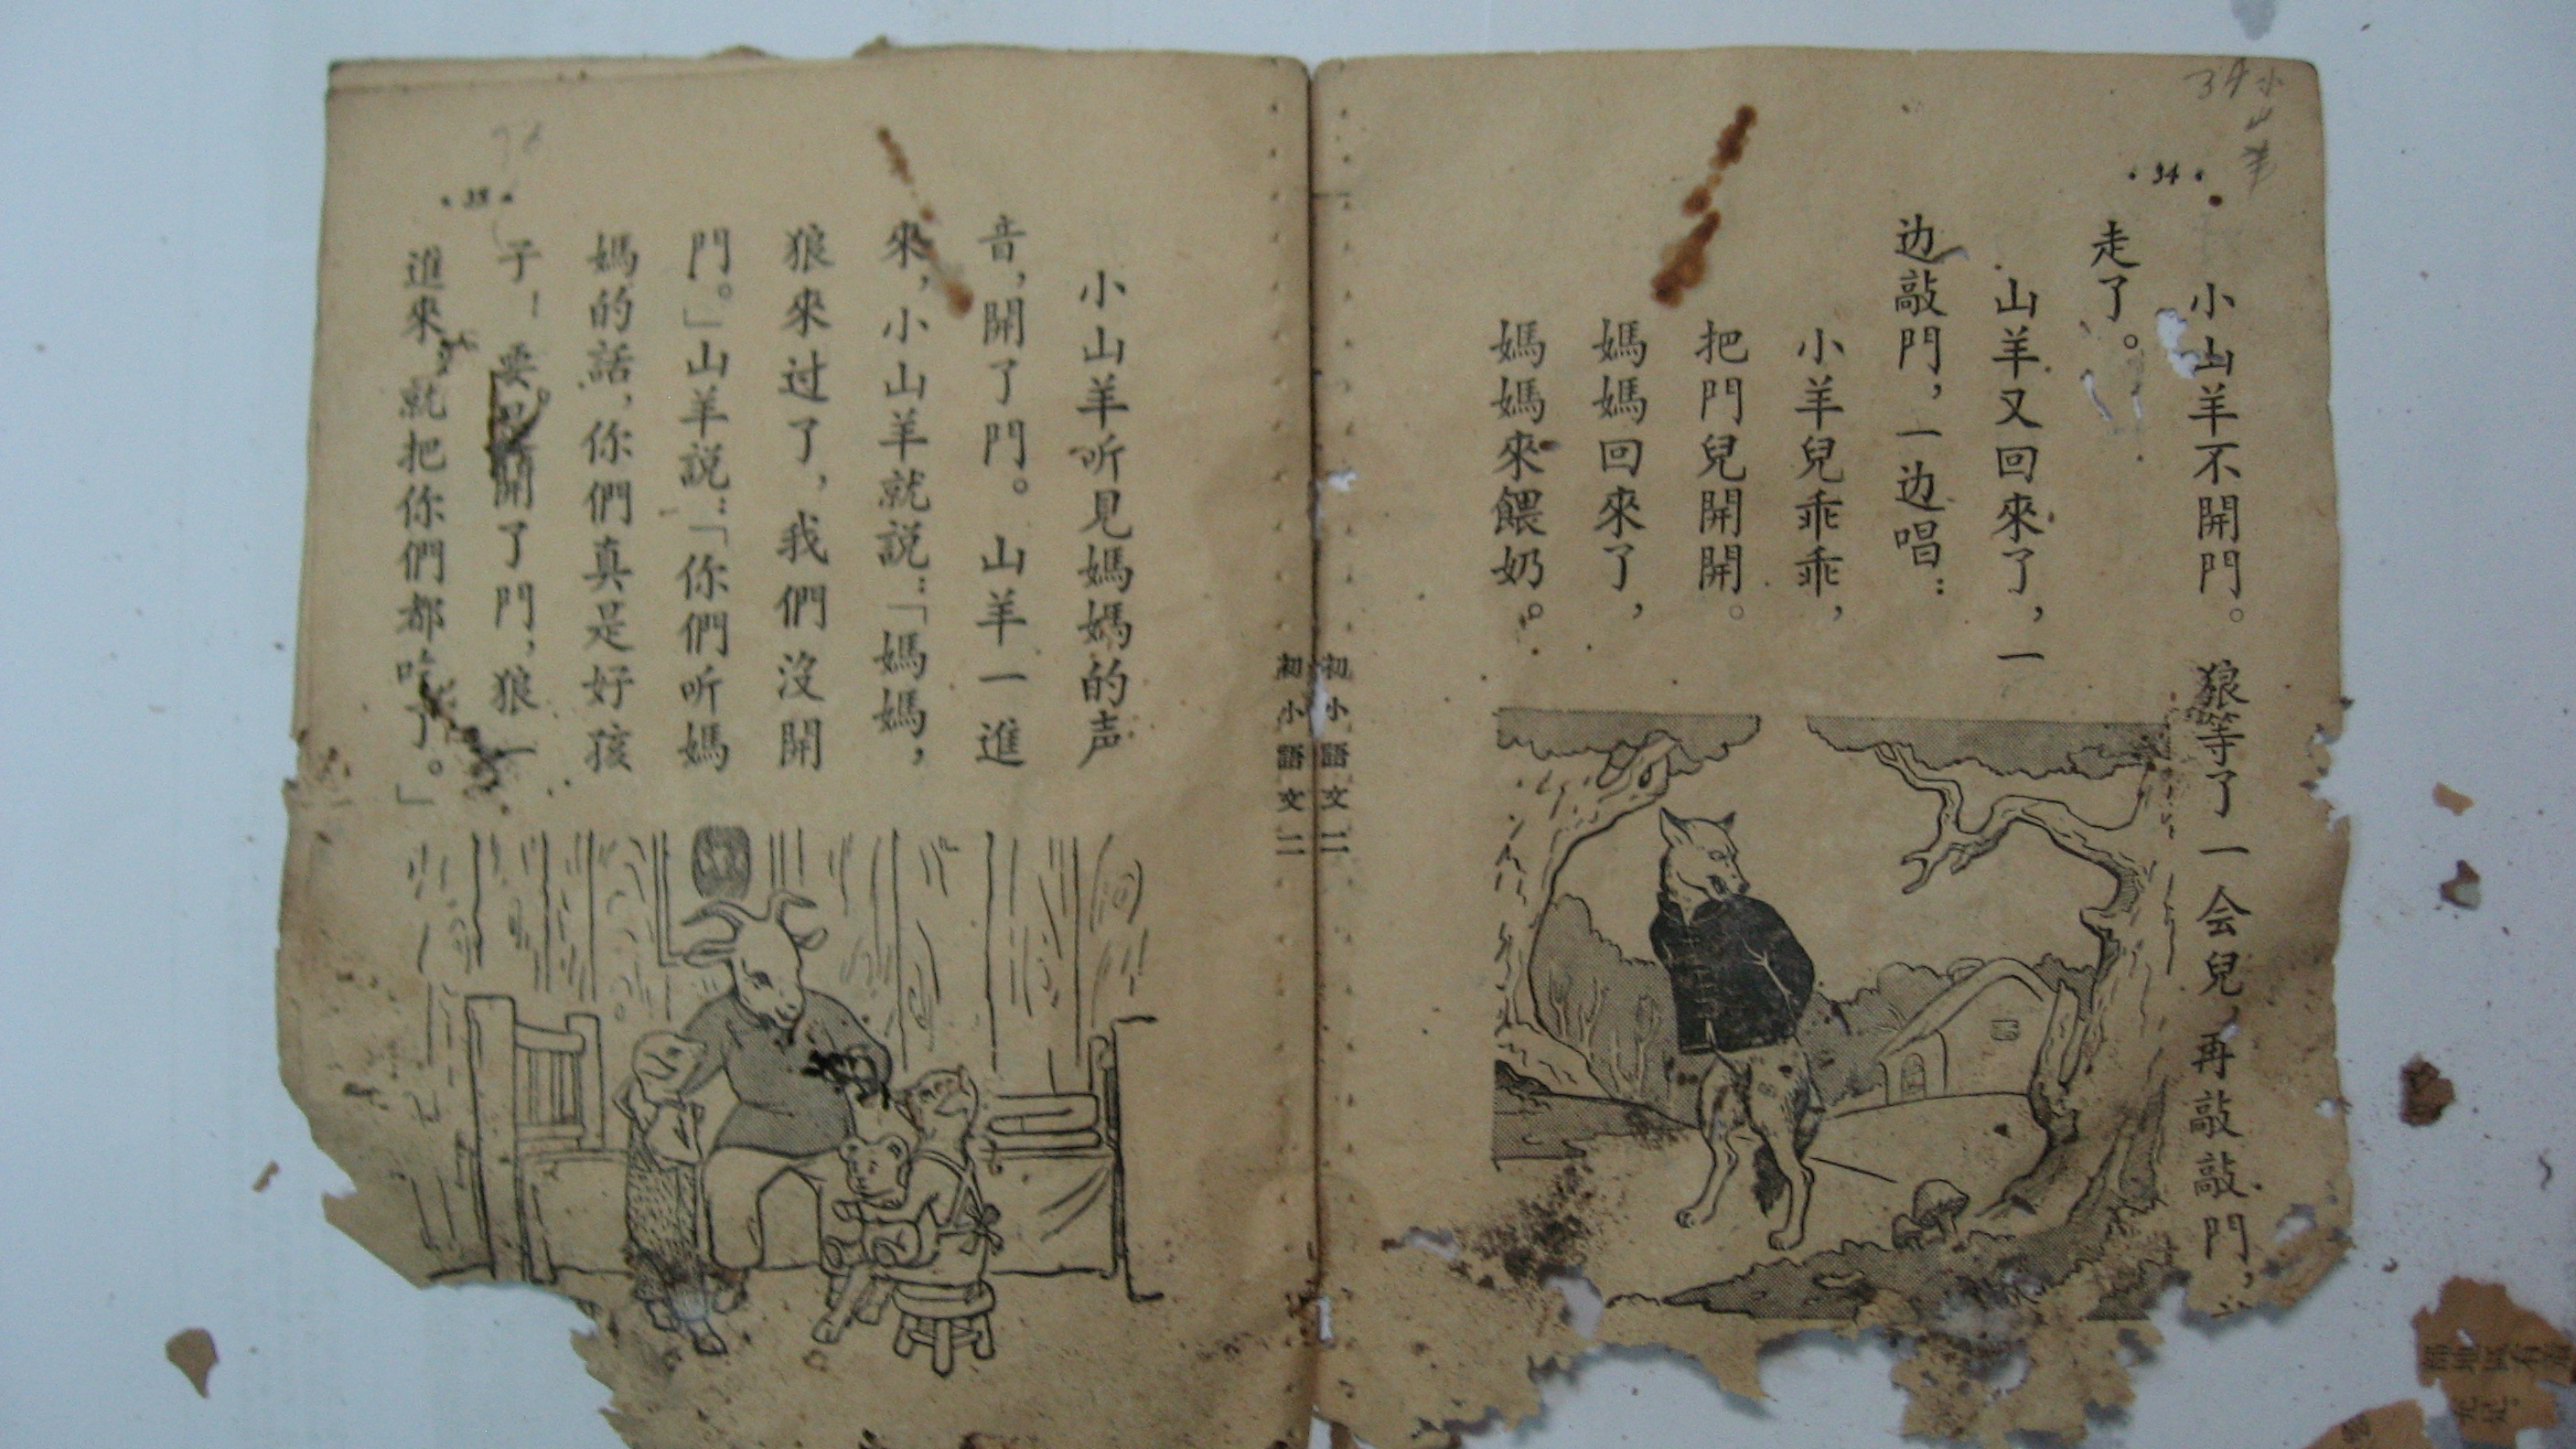 34 小山羊
・34・
小山羊不開門。狼等了一会兒，再敲敲門，
走了。
山羊又回來了，一
边敲門，一边唱：
小羊兒乖乖，
把門兒開開。
媽媽回來了，
媽媽來餵奶。
初小語文二
初小語文二
小山羊听見媽媽的声
音，開了門。山羊一進
來，小山羊就説：「媽媽，
狼來过了，我們沒開
門。」山羊説：「你們听媽
媽的話，你們真是好孩
子！要是開了門，狼一
進來，就把你們都吃了。」